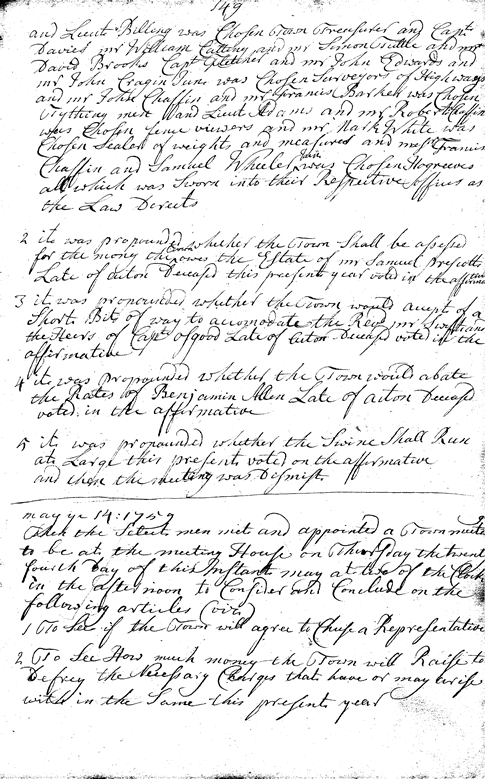 149
and Lieut Billing was Chosen Town Treasurer and Capt
Davies mr William Cutting and mr Simon Tuttle and mr
David Brooks Capt Fletcher and mr John Edwards and
mr John Cragin Junr was Chosen Surveyors of Highways
and mr John Chaffin and mr Francis Barker was Chosen
Tythingmen and Lieut Adams and mr Robert Chaffin
was Chosen fence viewers and mr Mark White was
Chosen Sealer of weights and measures and messrs Francis
Chaffin and Samuel Wheeler Junr was Chosen Hogreeves
all which was Sworn into their Respective offices as
the Law Directs
2 it was propounded whether the Town Shall be assessed
for the money the Town owes the Estate of mr Samuel prescott
Late of acton Deceased this present year voted in the affirmative
3 it was propounded whether the Town would accept of a
Short Bit of way to acomodate the Revd mr Swift and
the Heirs of Capt osgood Late of acton Deceased voted in the
affirmative
4 it was propounded whether the Town would abate
the Rates of Benjamin Allen Late of acton Deceasd
voted in the affirmative
5 it was propounded whether the Swine Shall Run
at Large this present voted on the affirmative
and then the meeting was Dismist
may ye 14: 1759
Then the Select men met and appointed a Town meeting
to be at the meeting House on Thursday the twenty
fourth Day of this Instant may at two of the Clock
in the afternoon to Consider and Conclude on the
following articles (viz)
1 To See if the Town will agree to Chuse a Representative
2 To See How much money the Town will Raise to
Defrey the Necessary Charges that have or may arise
with in the Same this present year